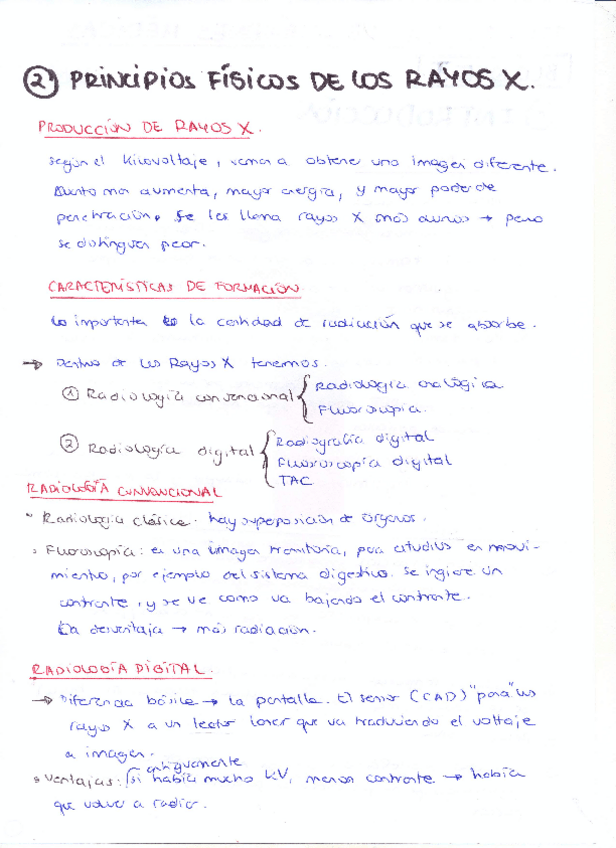 ② PRINCIPIOS FÍSICOS DE LOS RAYOS X.
PRODUCCIÓN DE RAYOS X.
según el kilovoltaje, vamos a obtener una imagen diferente.
Cuanto mas aumenta, mayor energía, y mayor poder de
penetración. Se les llama rayos X más duros → pero
se distinguen peor.
CARACTERÍSTICAS DE FORMACIÓN
Lo importante es la cantidad de radiación que se absorbe.
→ Dentro de los Rayos X tenemos.
① Radiología convencional { Radiología analógica
Fluoroscopia.
② Radiología digital { Radiografía digital
Fluoroscopía digital
TAC
RADIOLOGÍA CONVENCIONAL
Radiología clásica: hay superposición de órganos.
Fluoroscopía: es una imagen transitoria, para estudios en movi-
miento, por ejemplo del sistema digestivo. Se ingiere un
contraste, y se ve como va bajando el contraste.
La desventaja → más radiación.
RADIOLOGÍA DIGITAL.
→ Diferencia básica → la pantalla. El sensor (CAD) "pasa" los
rayos X a un lector laser que va traduciendo el voltaje
a imagen.
antiguamente
Ventajas: si había mucho kV, menos contraste → había
que volver a radiar.